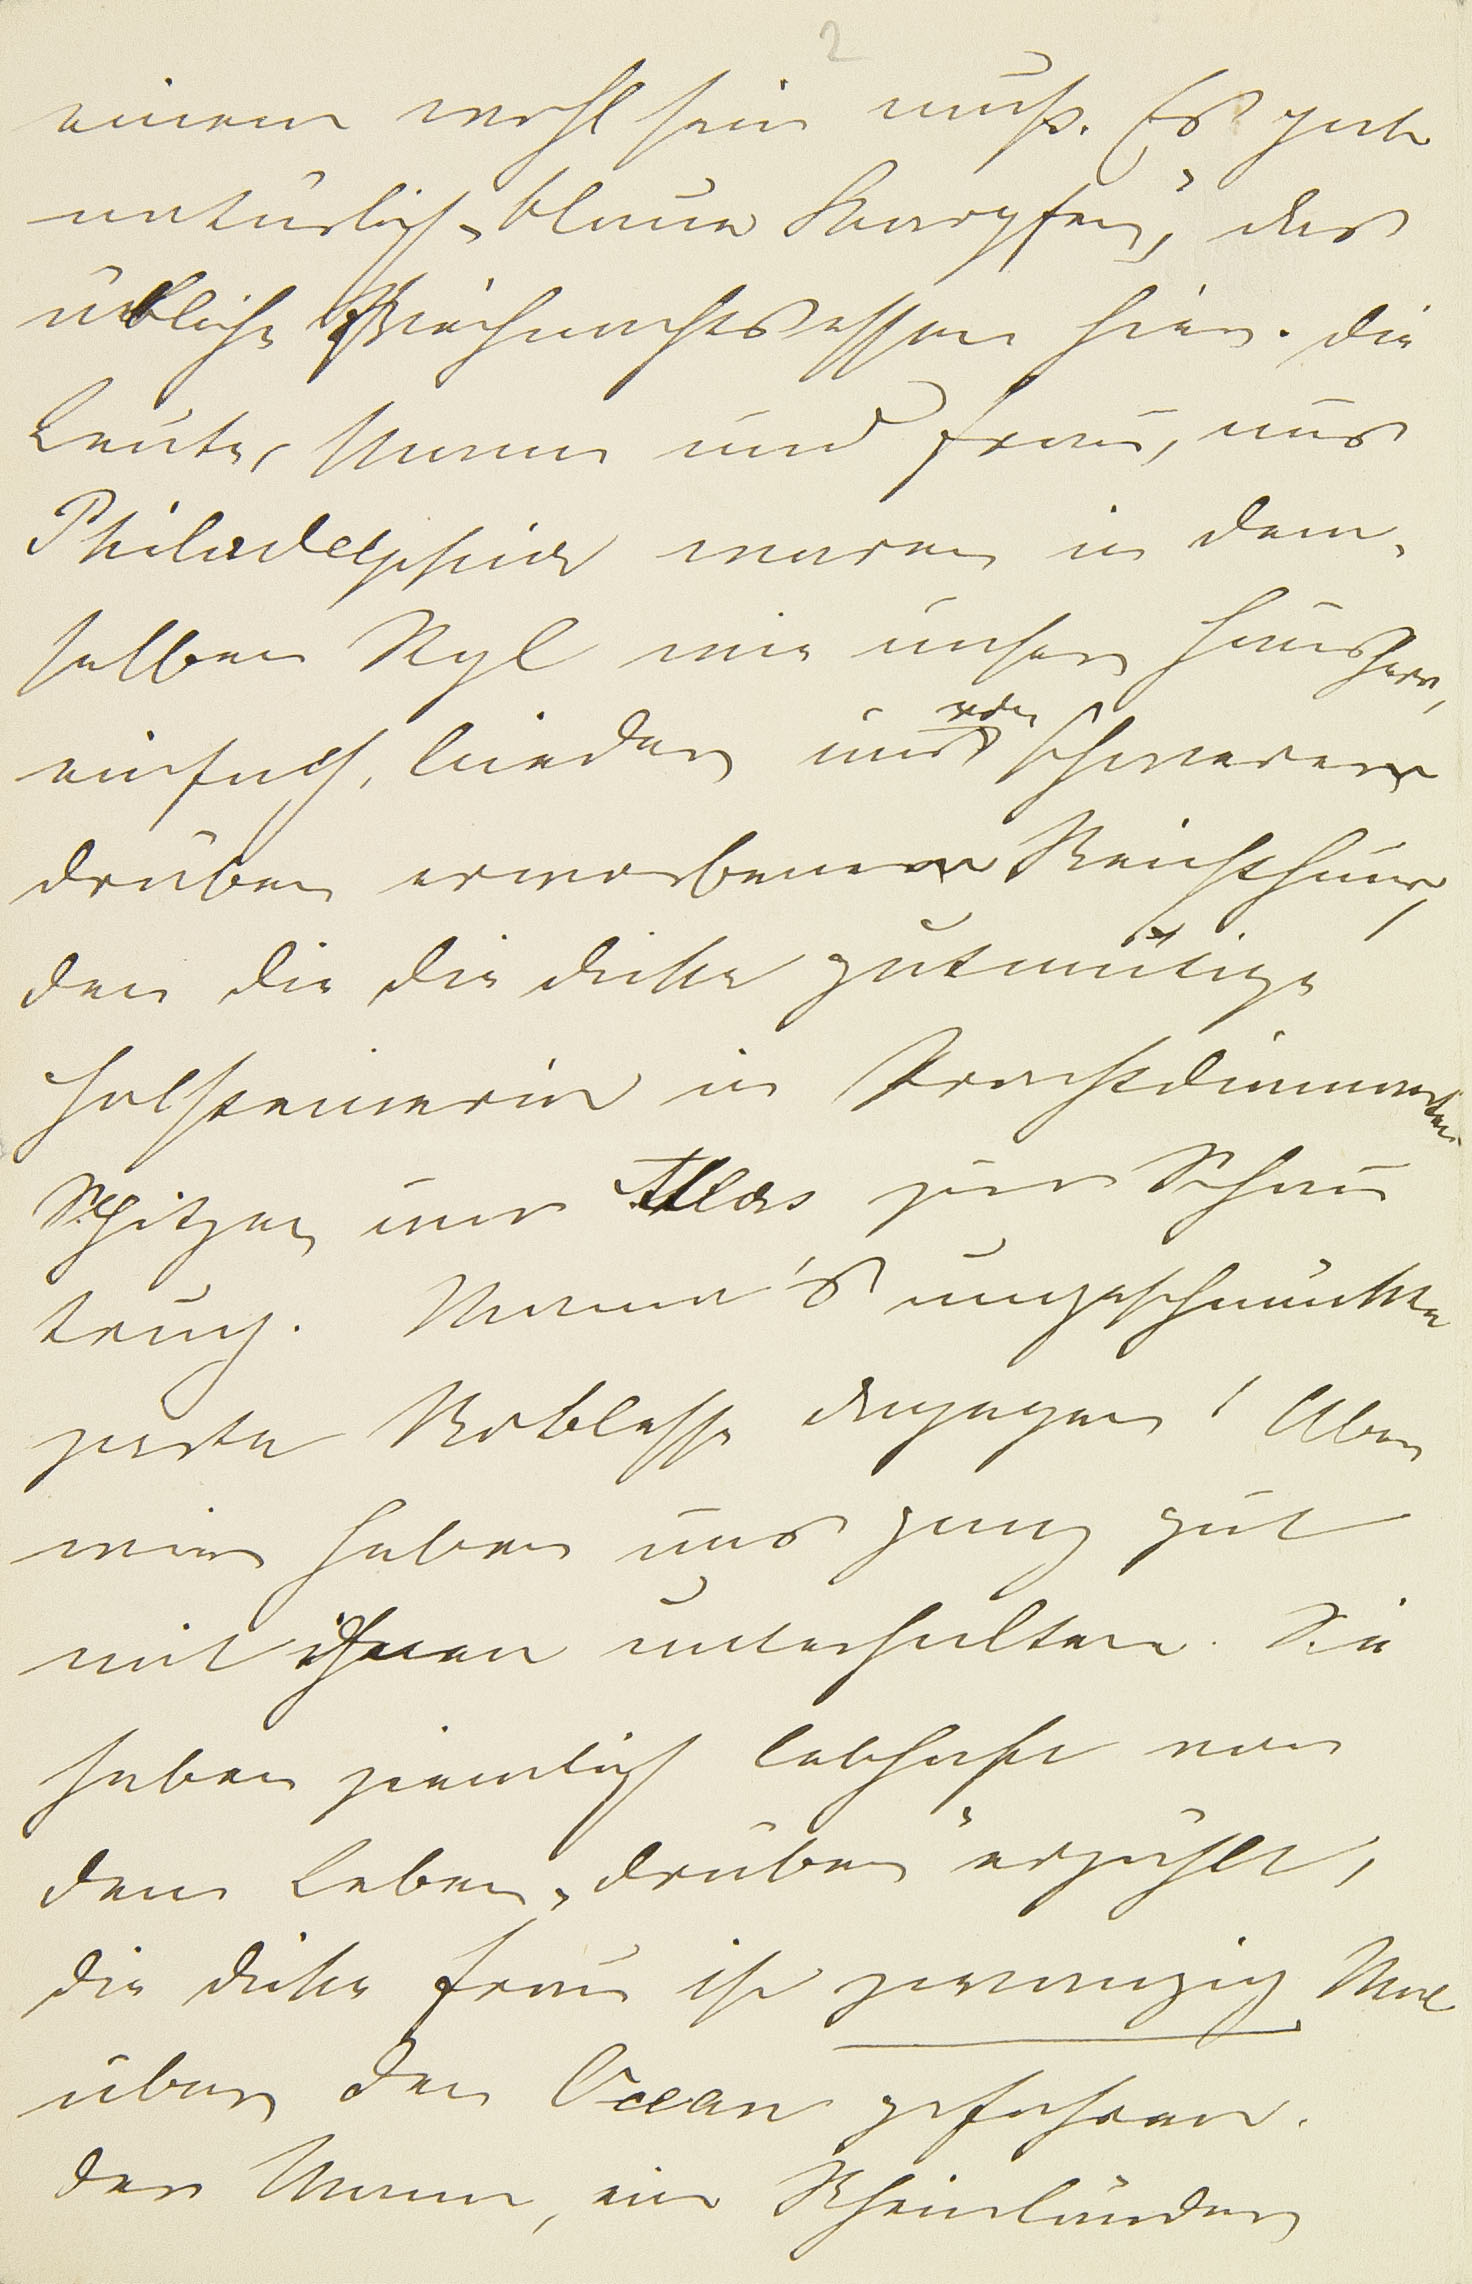 2
einem wohl sein muß. Es gab
natürlich „blaue Karpfen“, das
übliche Weihnachtsessen hier. Die
Leute, Mann und Frau, aus
Philadelphia waren in dem-
selben Styl wie unser Hausherr,
einfach, bieder und von schwerem
drüben erworbenem Reichthum,
den die die dicke gutmütige
Holsteinerin in Prachtdiamanten
Spitzen und Atlas zur Schau
trug. Mama's ungeschmückte
zarte Noblesse dagegen! Aber
wir haben uns ganz gut
mit ihnen unterhalten. Sie
haben ziemlich lebhaft von
dem Leben „drüben“ erzählt,
die dicke Frau ist zwanzig Mal
über den Ocean gefahren.
Der Mann, ein Rheinländer